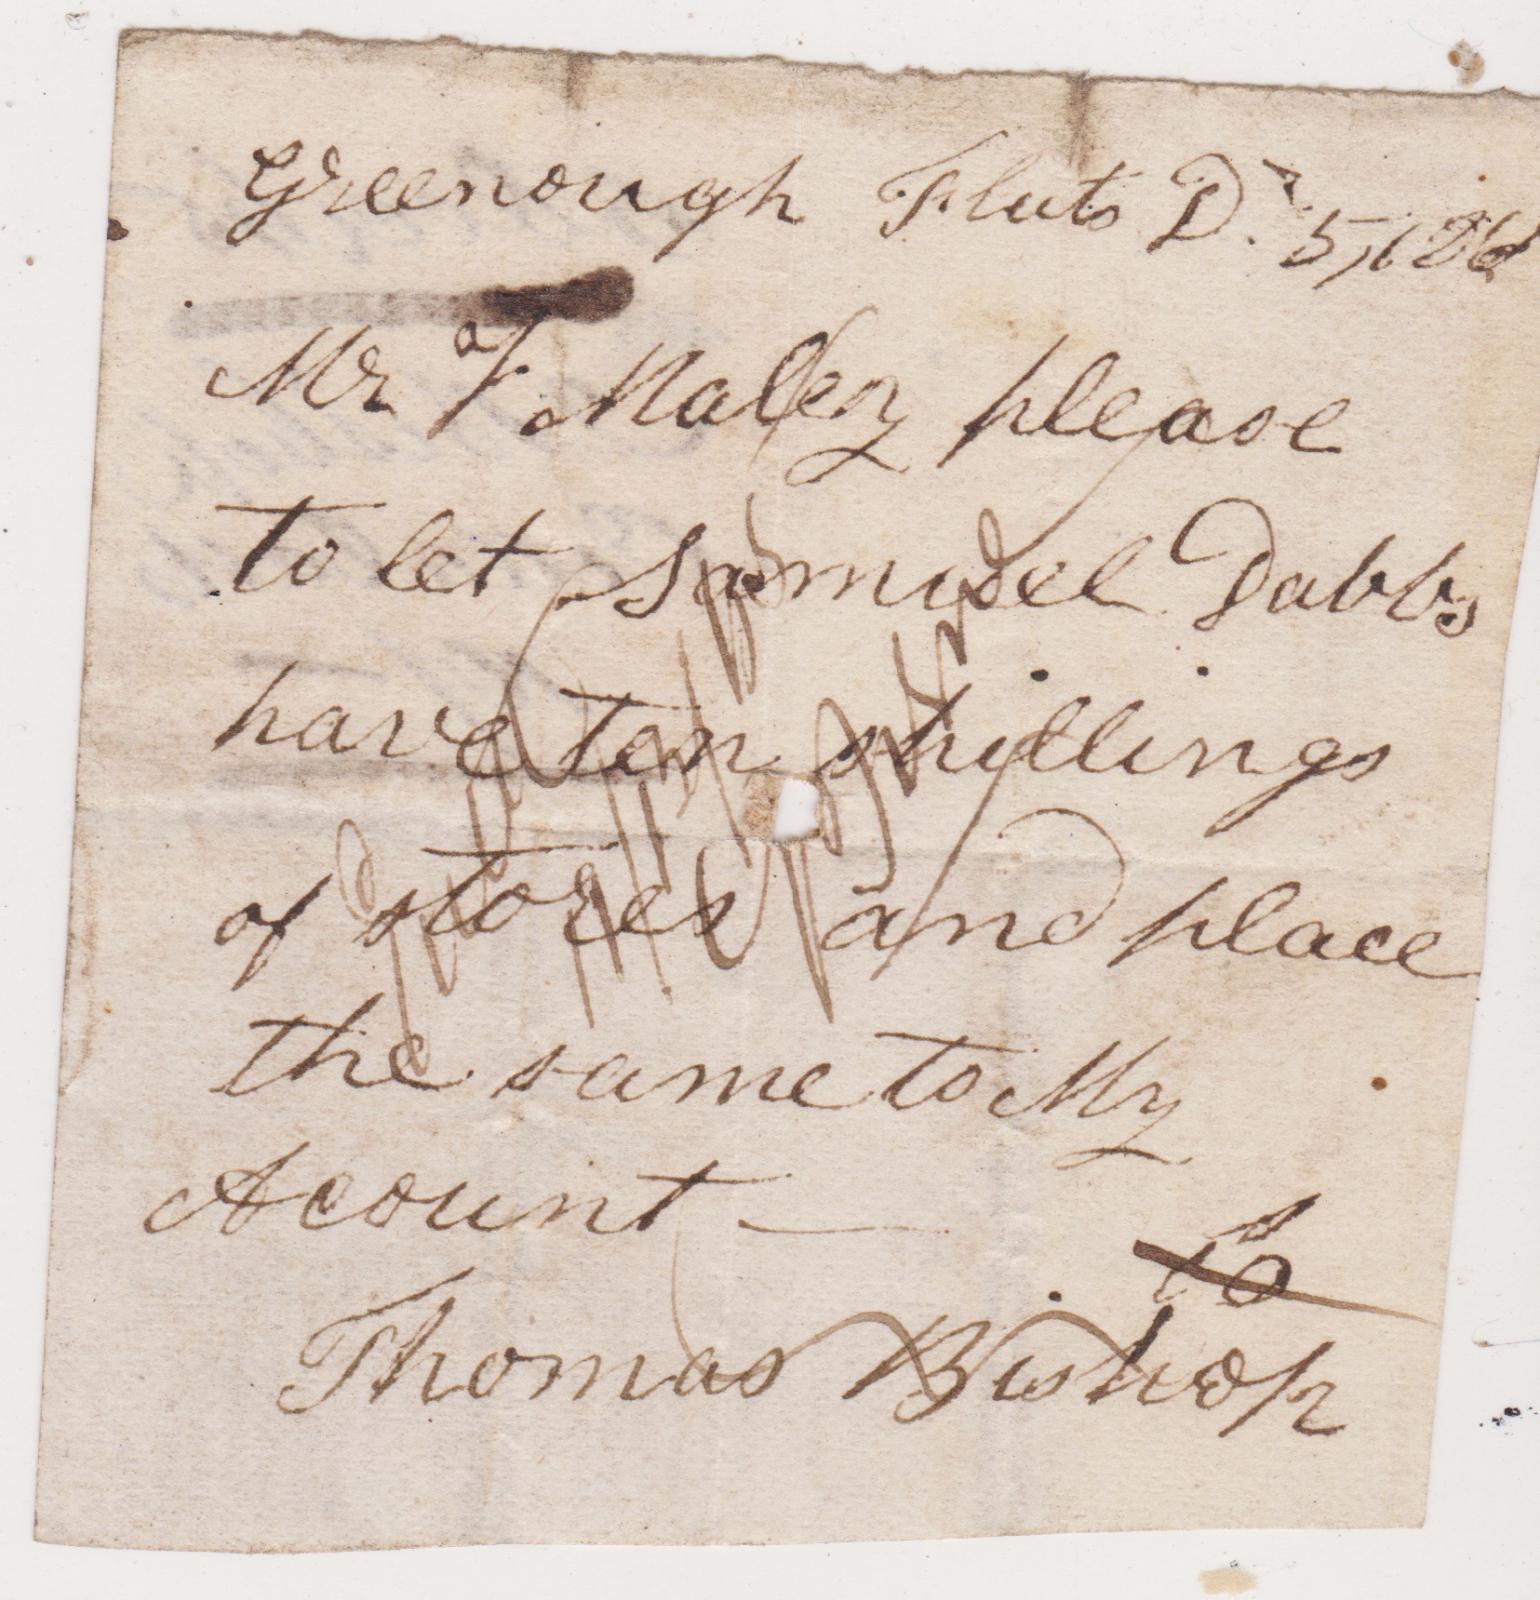 Greenough Fluts Dr. 5,1826
Mr F Maley please
to let Samuel Dabbs
have ten shillings
of stores and place
the same to My
Acount —
Thomas Bishop